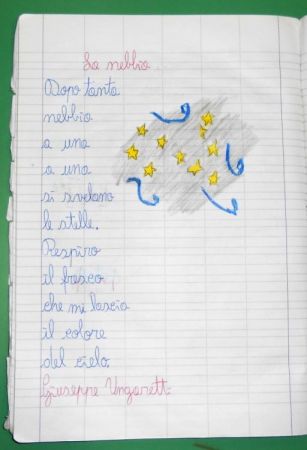 La nebbia.
Dopo tanta
nebbia
a una
a una
si svelano
le stelle.
Respiro
il fresco
che mi lascia
il colore
del cielo.
Giuseppe Ungaretti